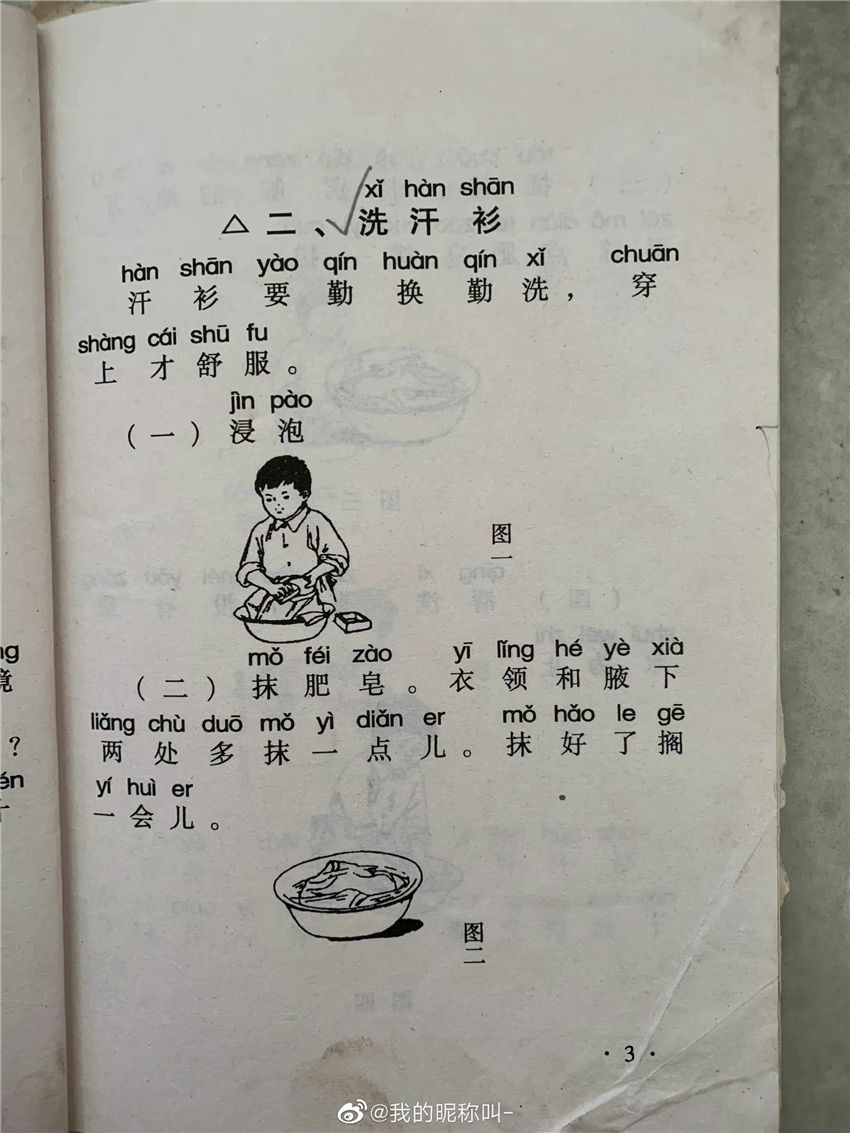 xǐ hàn shān
△二、洗汗衫
hàn shān yào qín huàn qín xǐ chuān
汗衫要勤换勤洗，穿
shàng cái shū fu
上才舒服。
jìn pào
（一）浸泡
图一
mǒ féi zào yī lǐng hé yè xià
（二）抹肥皂。衣领和腋下
liǎng chù duō mǒ yì diǎn er mǒ hǎo le gē
两处多抹一点儿。抹好了搁
yí huì er
一会儿。
图二
·3·
@我的昵称叫-